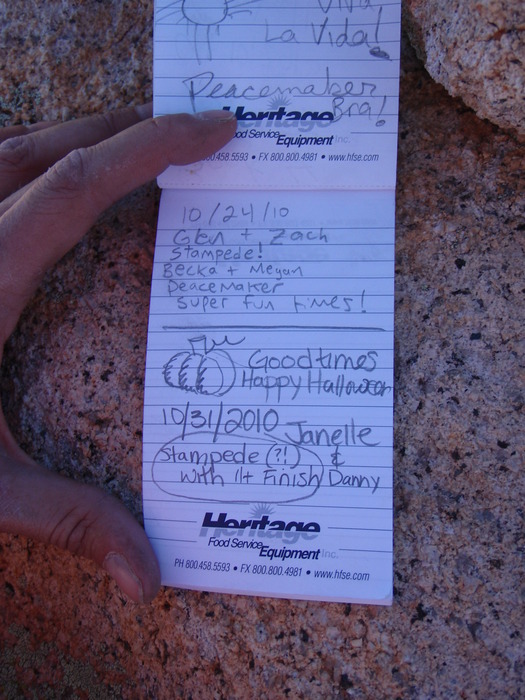 Viva
La Vida!
Peacemaker
Bra!
Heritage
Food Service
Equipment Inc.
.458.5593 • FX 800.800.4981 • www.hfse.com
10/24/10
Glen + Zach
Stampede!
Becka + Megan
Peacemaker
super fun times!
Goodtimes
Happy Halloween
10/31/2010 Janelle
Stampede (?!) &
with 11+ Finish Danny
Heritage
Food Service
Equipment Inc.
PH 800.458.5593 • FX 800.800.4981 • www.hfse.com